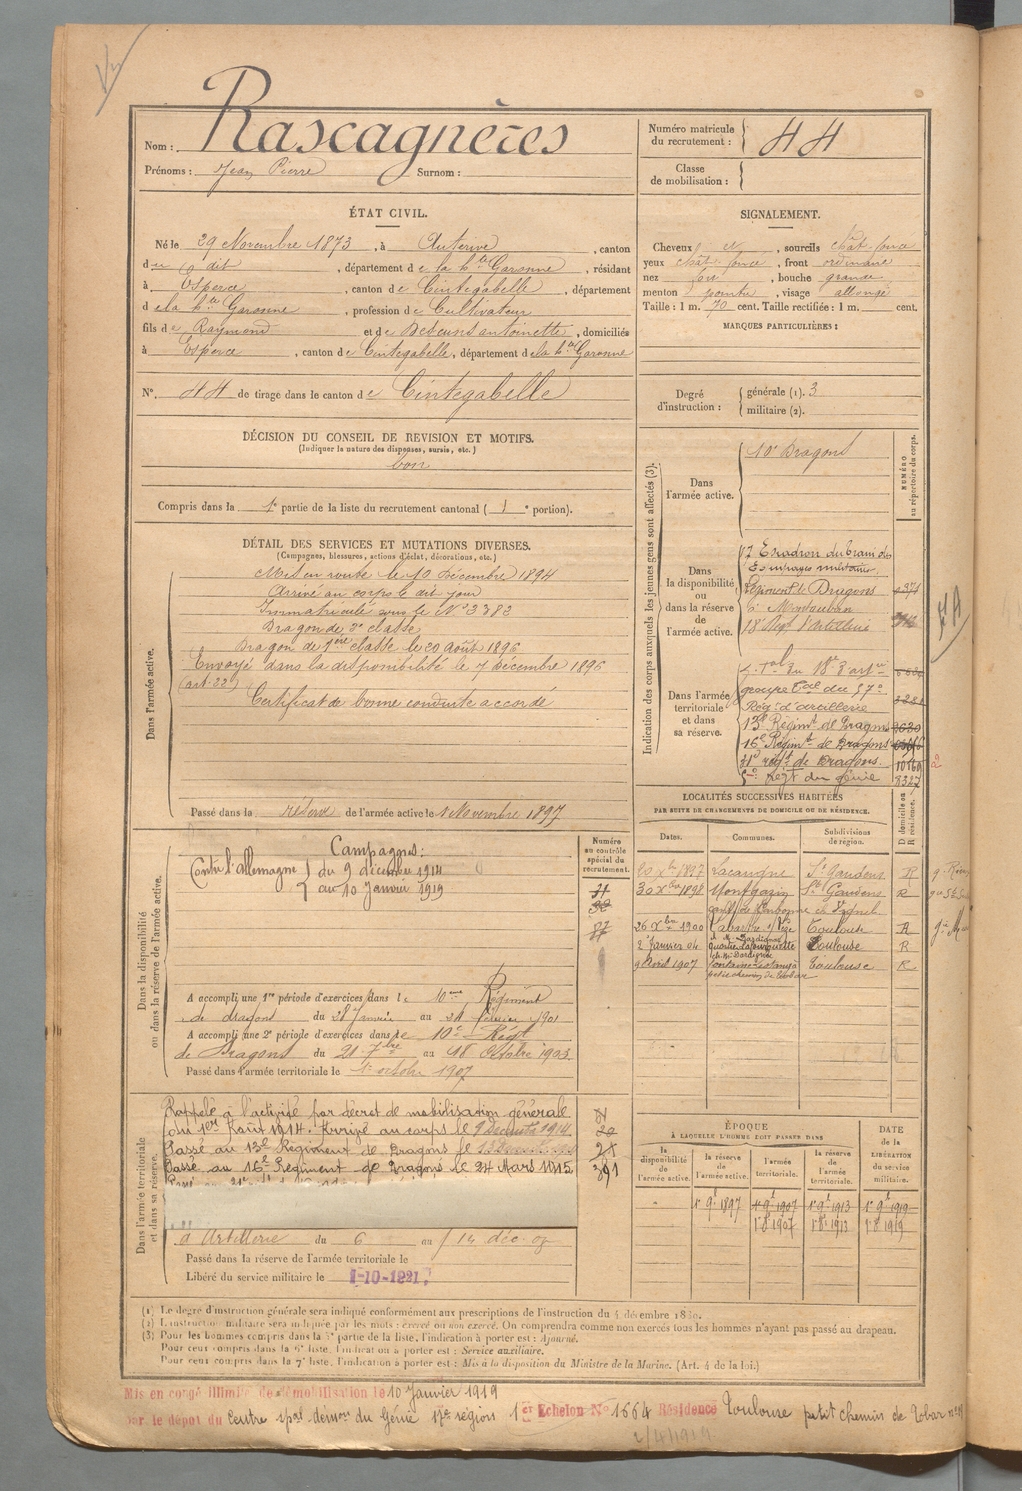 Nom : Rascagnères
Prénoms : Jean Pierre Surnom :
Numéro matricule du recrutement : 44
Classe de mobilisation :
ÉTAT CIVIL.
Né le 29 Novembre 1873, à Auterive, canton
du dit, département de la hte Garonne, résidant
à Esperce, canton de Cintegabelle, département
de la hte Garonne, profession de Cultivateur
fils de Raymond et de Descuns antoinette, domiciliés
à Esperce, canton de Cintegabelle, département de la hte Garonne
N° 44 de tirage dans le canton de Cintegabelle
SIGNALEMENT.
Cheveux et, sourcils chât-foncé
yeux chât-foncé, front ordinaire
nez, bouche grande
menton pointu, visage allongé
Taille : 1 m. 70 cent. Taille rectifiée : 1 m. cent.
MARQUES PARTICULIÈRES :
Degré d'instruction : générale (1). 3
militaire (2).
DÉCISION DU CONSEIL DE REVISION ET MOTIFS.
(Indiquer la nature des dispenses, sursis, etc.)
bon
Compris dans la 1e partie de la liste du recrutement cantonal (1e portion).
DÉTAIL DES SERVICES ET MUTATIONS DIVERSES.
(Campagnes, blessures, actions d'éclat, décorations, etc.)
Dans l'armée active.
Mis en route le 10 Décembre 1894
Arrivé au corps le dit jour
Immatriculé sous le N° 3383
Dragon de 2e classe
Dragon de 1ère classe le 20 Août 1896
Envoyé dans la disponibilité le 7 décembre 1896
(art-22)
Certificat de bonne conduite accordé
Passé dans la réserve de l'armée active le 1 Novembre 1897
Indication des corps auxquels les jeunes gens sont affectés (3).
NUMÉRO au répertoire du corps.
Dans l'armée active.
10e Dragons
Dans la disponibilité ou dans la réserve de l'armée active.
17 Escadron du train des
Equipages militaires.
Régiment de Dragons
à Montauban
18e Regt d'artillerie
Dans l'armée territoriale et dans sa réserve.
du 18e d'artie
groupe tal du 57e
Rég. d'artillerie
13e Régimt de Dragons 2630
16e Régimt de Dragons
31e régt de Dragons. 10160
2
Régt du génie 8327
LOCALITÉS SUCCESSIVES HABITÉES
PAR SUITE DE CHANGEMENTS DE DOMICILE OU DE RÉSIDENCE.
Dates. Communes. Subdivisions de région. D domicile ou R résidence.
20 Xbre 1897 Lacaugne St Gaudens R
30 Xbre 1898 Montgazin St Gaudens R
26 Xbre 1900 Toulouse R
2 Janvier 04 Toulouse R
9 Avril 1907 Toulouse R
Dans la disponibilité ou dans la réserve de l'armée active.
Campagnes :
Contre l'allemagne du 9 décembre 1914
au 10 Janvier 1919
Numéro au contrôle spécial du recrutement.
A accompli une 1re période d'exercices dans le 10eme Régiment
de dragons du 28 Janvier au 24 février 1901
A accompli une 2e période d'exercices dans le 10e Régt
de Dragons du 21 7bre au 18 Octobre 1903
Passé dans l'armée territoriale le 1er octobre 1907
Dans l'armée territoriale et dans sa réserve.
Rappelé à l'activité par décret de mobilisation générale
du 1er Août 1914. Arrivé au corps le 9 Décembre 1914
Passé au 13e Régiment de Dragons le
Passé au 16e Régiment de Dragons le 24 Mars 1915
391
d'Artillerie du 6 au 14 déc.
Passé dans la réserve de l'armée territoriale le
Libéré du service militaire le 1-10-1921.
ÉPOQUE
À LAQUELLE L'HOMME DOIT PASSER DANS
la disponibilité de l'armée active.
la réserve de l'armée active.
l'armée territoriale.
la réserve de l'armée territoriale.
DATE de la LIBÉRATION du service militaire.
1er 9e 1897 1er 9e 1907 1er 9e 1913 1er 9e 1919
1er 8e 1907 1er 8e 1913 1er 8e 1919
(1) Le degré d'instruction générale sera indiqué conformément aux prescriptions de l'instruction du 4 décembre 1889.
(2) L'instruction militaire sera indiquée par les mots : exercé ou non exercé. On comprendra comme non exercés tous les hommes n'ayant pas passé au drapeau.
(3) Pour les hommes compris dans la 5e partie de la liste, l'indication à porter est : Ajourné.
Pour ceux compris dans la 6e liste, l'indication à porter est : Service auxiliaire.
Pour ceux compris dans la 7e liste, l'indication à porter est : Mis à la disposition du Ministre de la Marine. (Art. 4 de la loi.)
Mis en congé illimité de démobilisation le 10 Janvier 1919
par le dépôt du Centre spal démon du Génie 17e région 1er Echelon N° 1664 Résidence Toulouse petit chemin de Tobar
2/4/1919